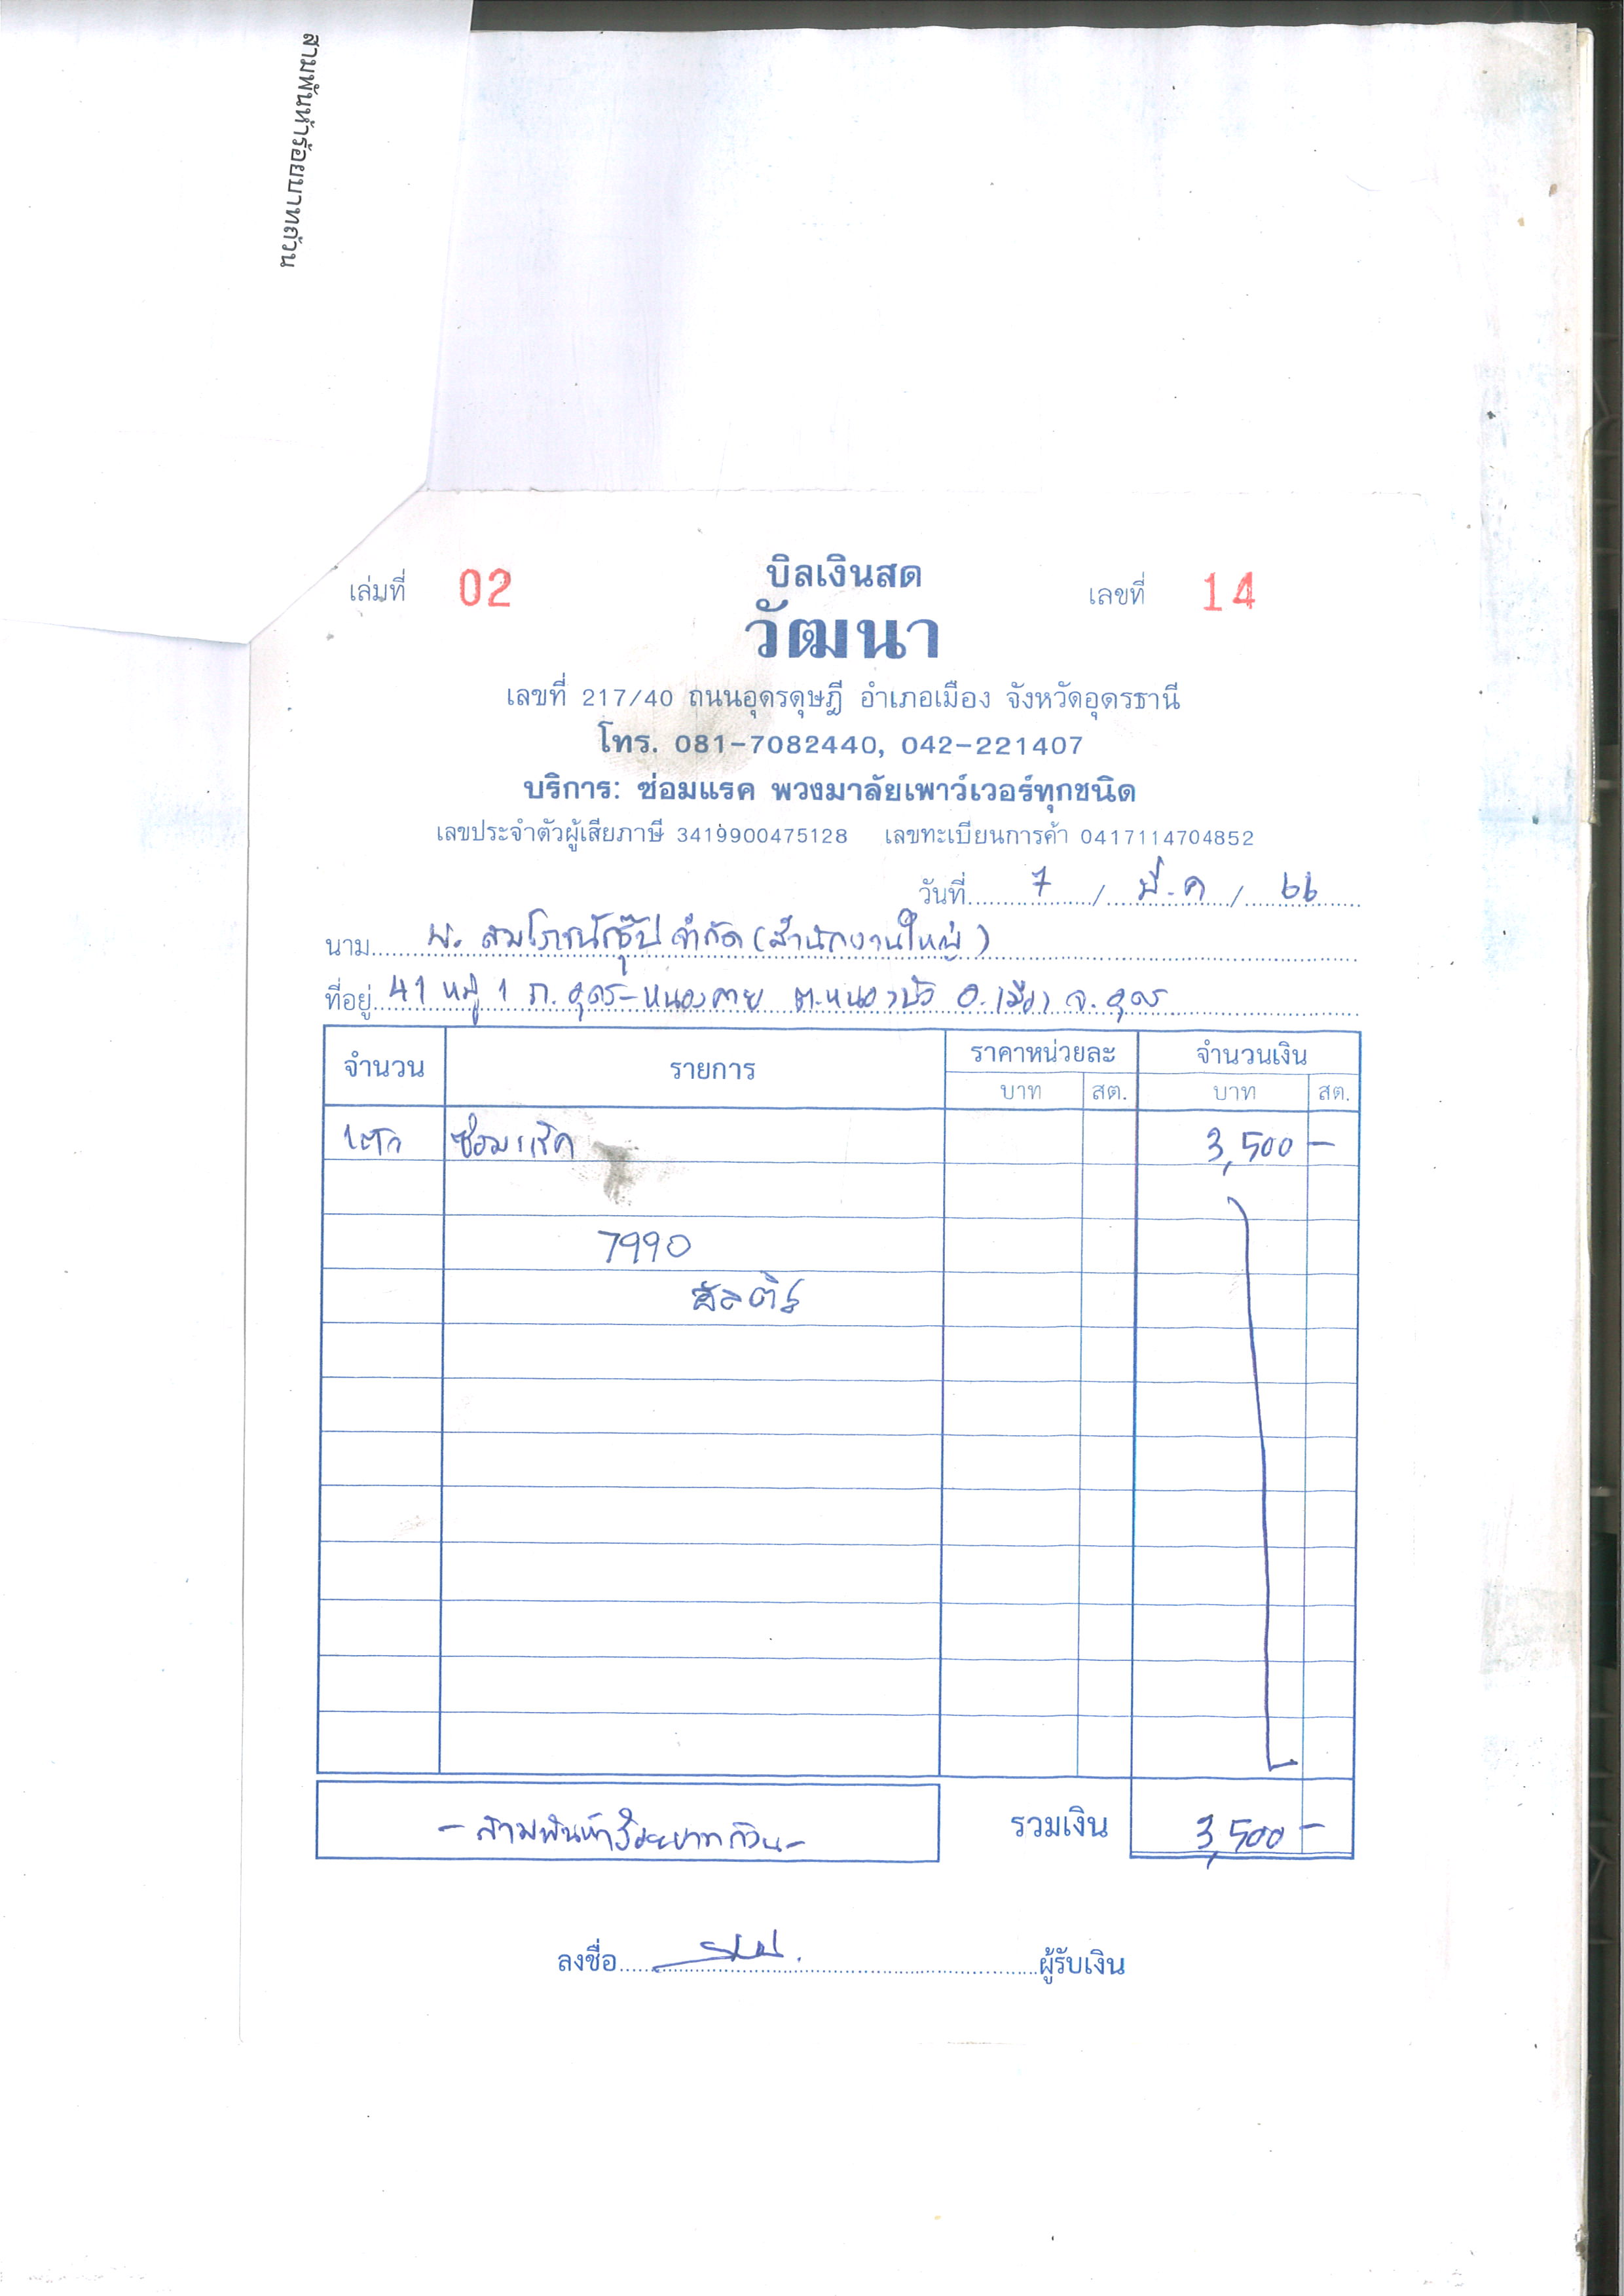 สามพันห้าร้อยบาทถ้วน
บิลเงินสด
เล่มที่ 02 เลขที่ 14
วัฒนา
เลขที่ 217/40 ถนนอุดรดุษฎี อำเภอเมือง จังหวัดอุดรธานี
โทร. 081-7082440, 042-221407
บริการ: ซ่อมแรค พวงมาลัยเพาว์เวอร์ทุกชนิด
เลขประจำตัวผู้เสียภาษี 3419900475128 เลขทะเบียนการค้า 0417114704852
วันที่ 7 / มี.ค / 66
นาม จำกัด (สำนักงานใหญ่)
ที่อยู่ 41 หมู่ 1 ถ. อุดร-หนองคาย ต.หนองบัว อ.เมือง จ.อุดร
จำนวน รายการ ราคาหน่วยละ จำนวนเงิน
บาท สต. บาท สต.
1ตัว ซ่อมแร็ค 3,500 -
7990
รวมเงิน 3,500 -
- สามพันห้าร้อยบาทถ้วน -
ลงชื่อ ผู้รับเงิน